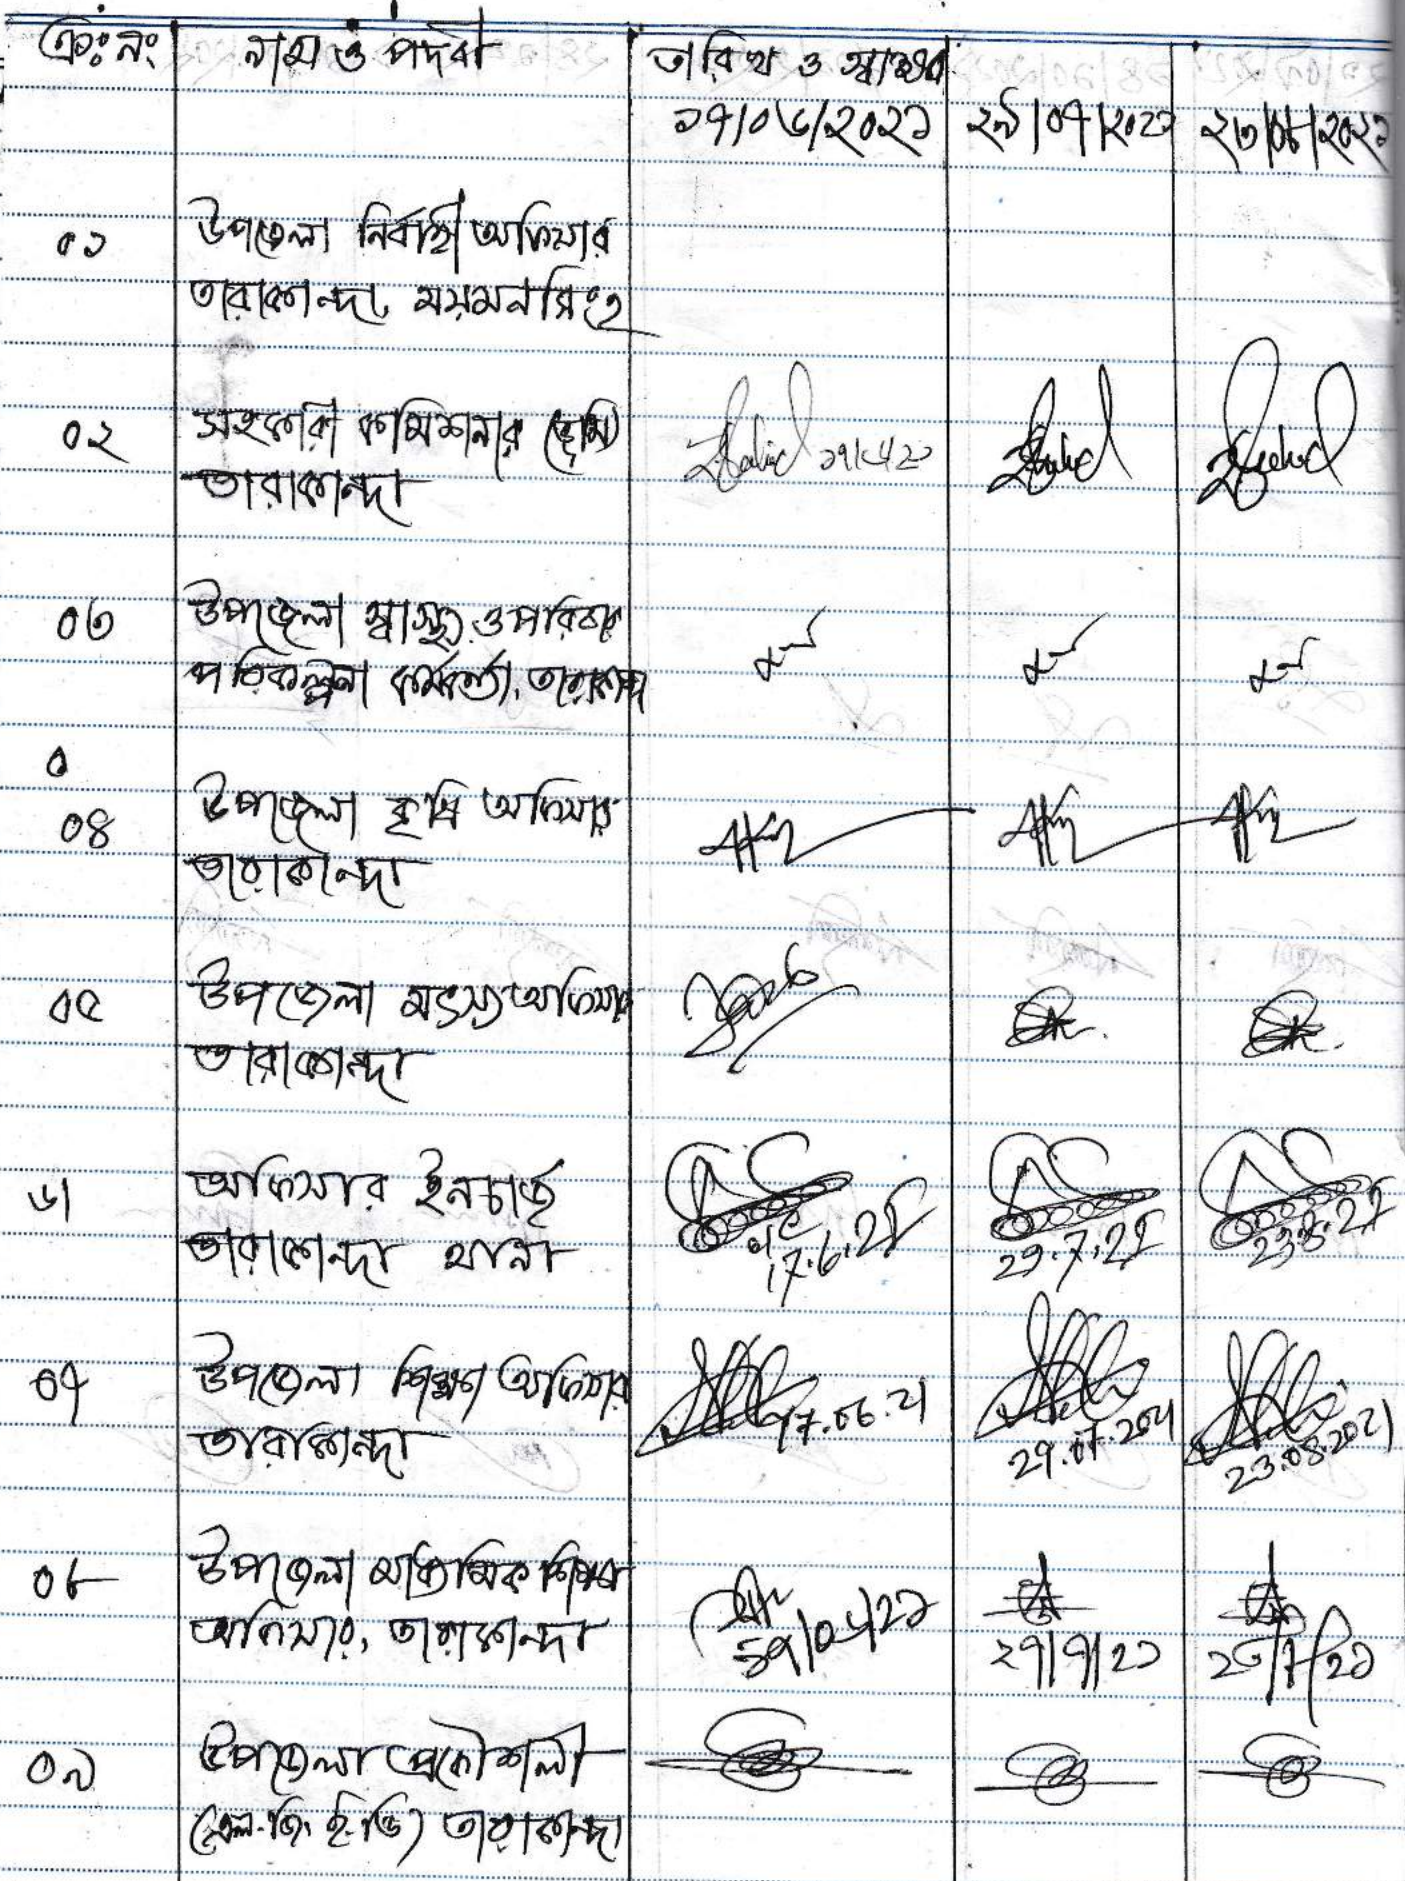 ক্রঃ নং নাম ও পদবী তারিখ ও স্বাক্ষর
১৭/০৬/২০২১ ২৯/০৭/২০২১ ২৩/০৮/২০২১
০১ উপজেলা নির্বাহী অফিসার
তারাকান্দা, ময়মনসিংহ
০২ সহকারী কমিশনার (ভূমি)
তারাকান্দা
০৩ উপজেলা স্বাস্থ্য ও পরিবার
পরিকল্পনা কর্মকর্তা, তারাকান্দা
০
০৪ উপজেলা কৃষি অফিসার
তারাকান্দা
০৫ উপজেলা মৎস্য অফিসার
তারাকান্দা
৬। অফিসার ইনচার্জ
তারাকান্দা থানা
17.6.21 29.7.21 23.8.21
০৭ উপজেলা শিক্ষা অফিসার
তারাকান্দা
17.06.21 29.07.2021 23.08.2021
০৮ উপজেলা মাধ্যমিক শিক্ষা
অফিসার, তারাকান্দা
২৭/৭/২১
০৯ উপজেলা প্রকৌশলী
(এল.জি.ই.ডি) তারাকান্দা